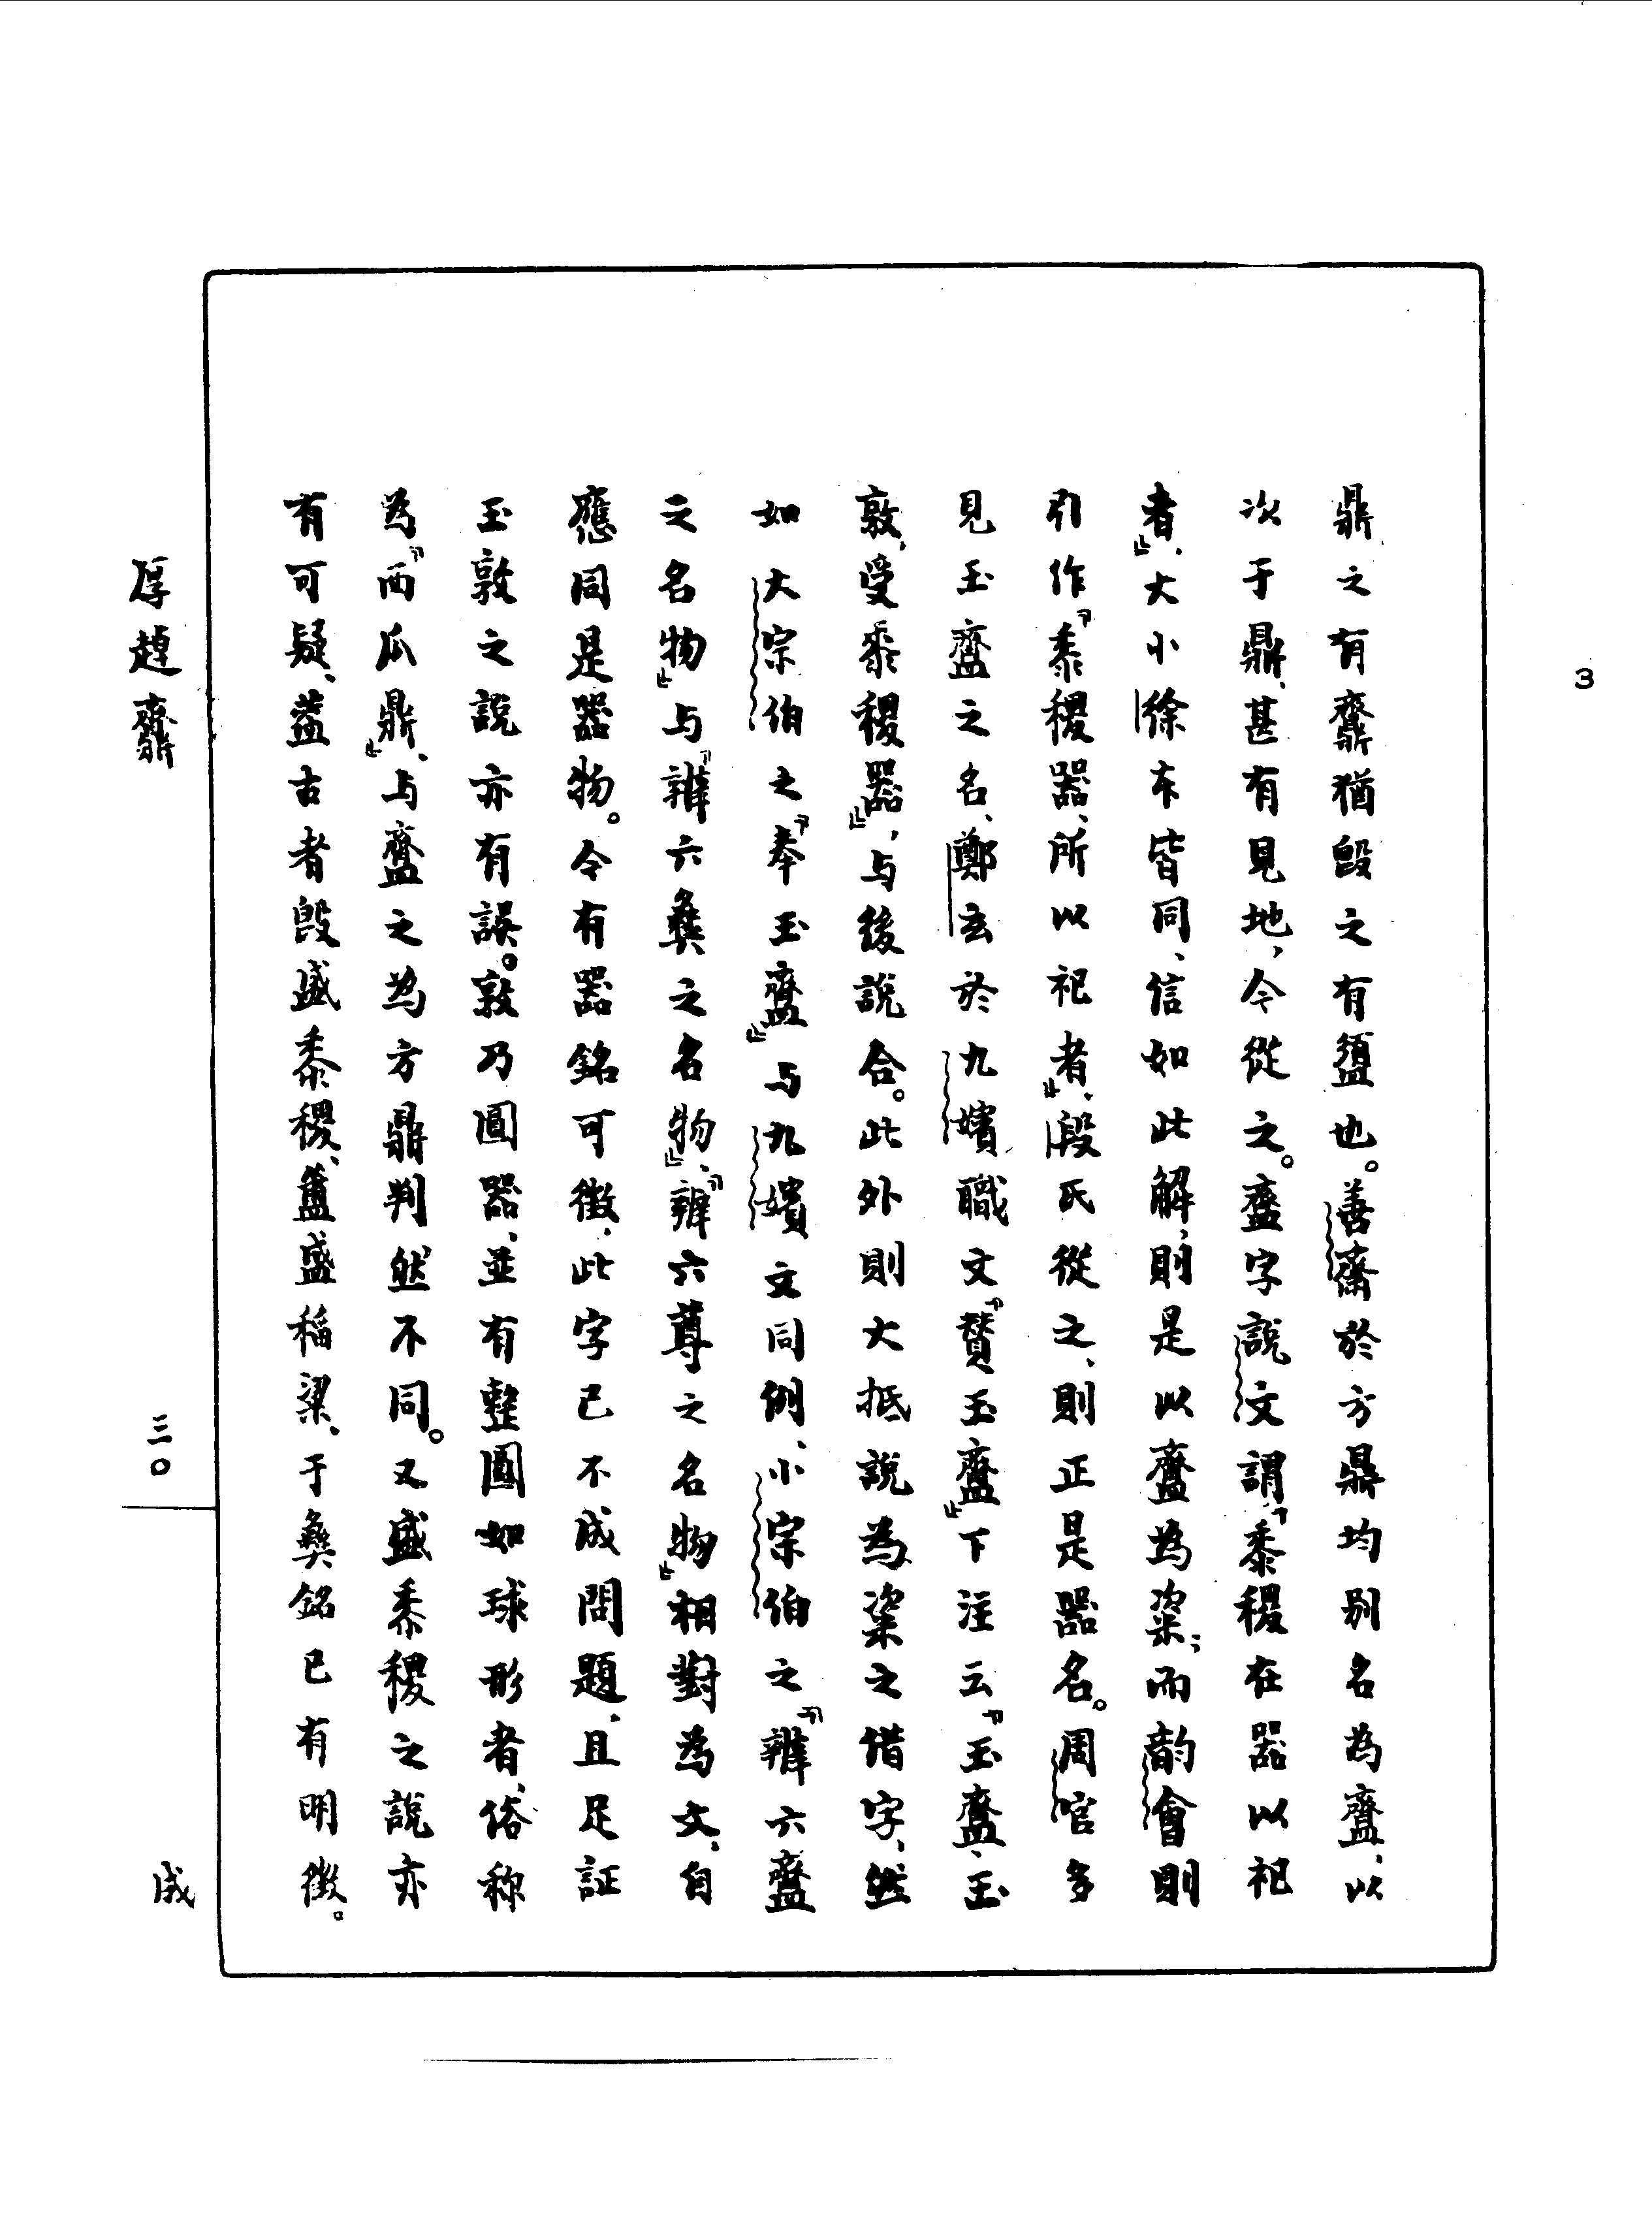 鼎之有䵼猶𣪘之有盨也。善齋於方鼎均別名為齍、以
次于鼎、甚有見地，今從之。齍字說文謂『黍稷在器以祀
者』、大小徐本皆同、信如此解，則是以齍為粢；而韵會則
引作『黍稷器、所以祀者』、段氏從之、則正是器名。周官多
見玉齍之名、鄭玄於九嬪職文『贊玉齍』下注云『玉齍、玉
敦，受黍稷器』，与後說合。此外則大抵說為粢之借字、然
如大宗伯之『奉玉齍』与九嬪文同例、小宗伯之『辨六齍
之名物』与『辨六彝之名物』、『辨六尊之名物』相對為文，自
應同是器物。今有器銘可徵，此字已不成問題，且足証
玉敦之說亦有誤。敦乃圓器，並有整圓如球形者，俗称
為『西瓜鼎』、与齍之為方鼎判然不同。又盛黍稷之說亦
有可疑、蓋古者𣪘盛黍稷、簠盛稻粱、于彝銘已有明徵。
厚趠齋鼎
三〇
成
3